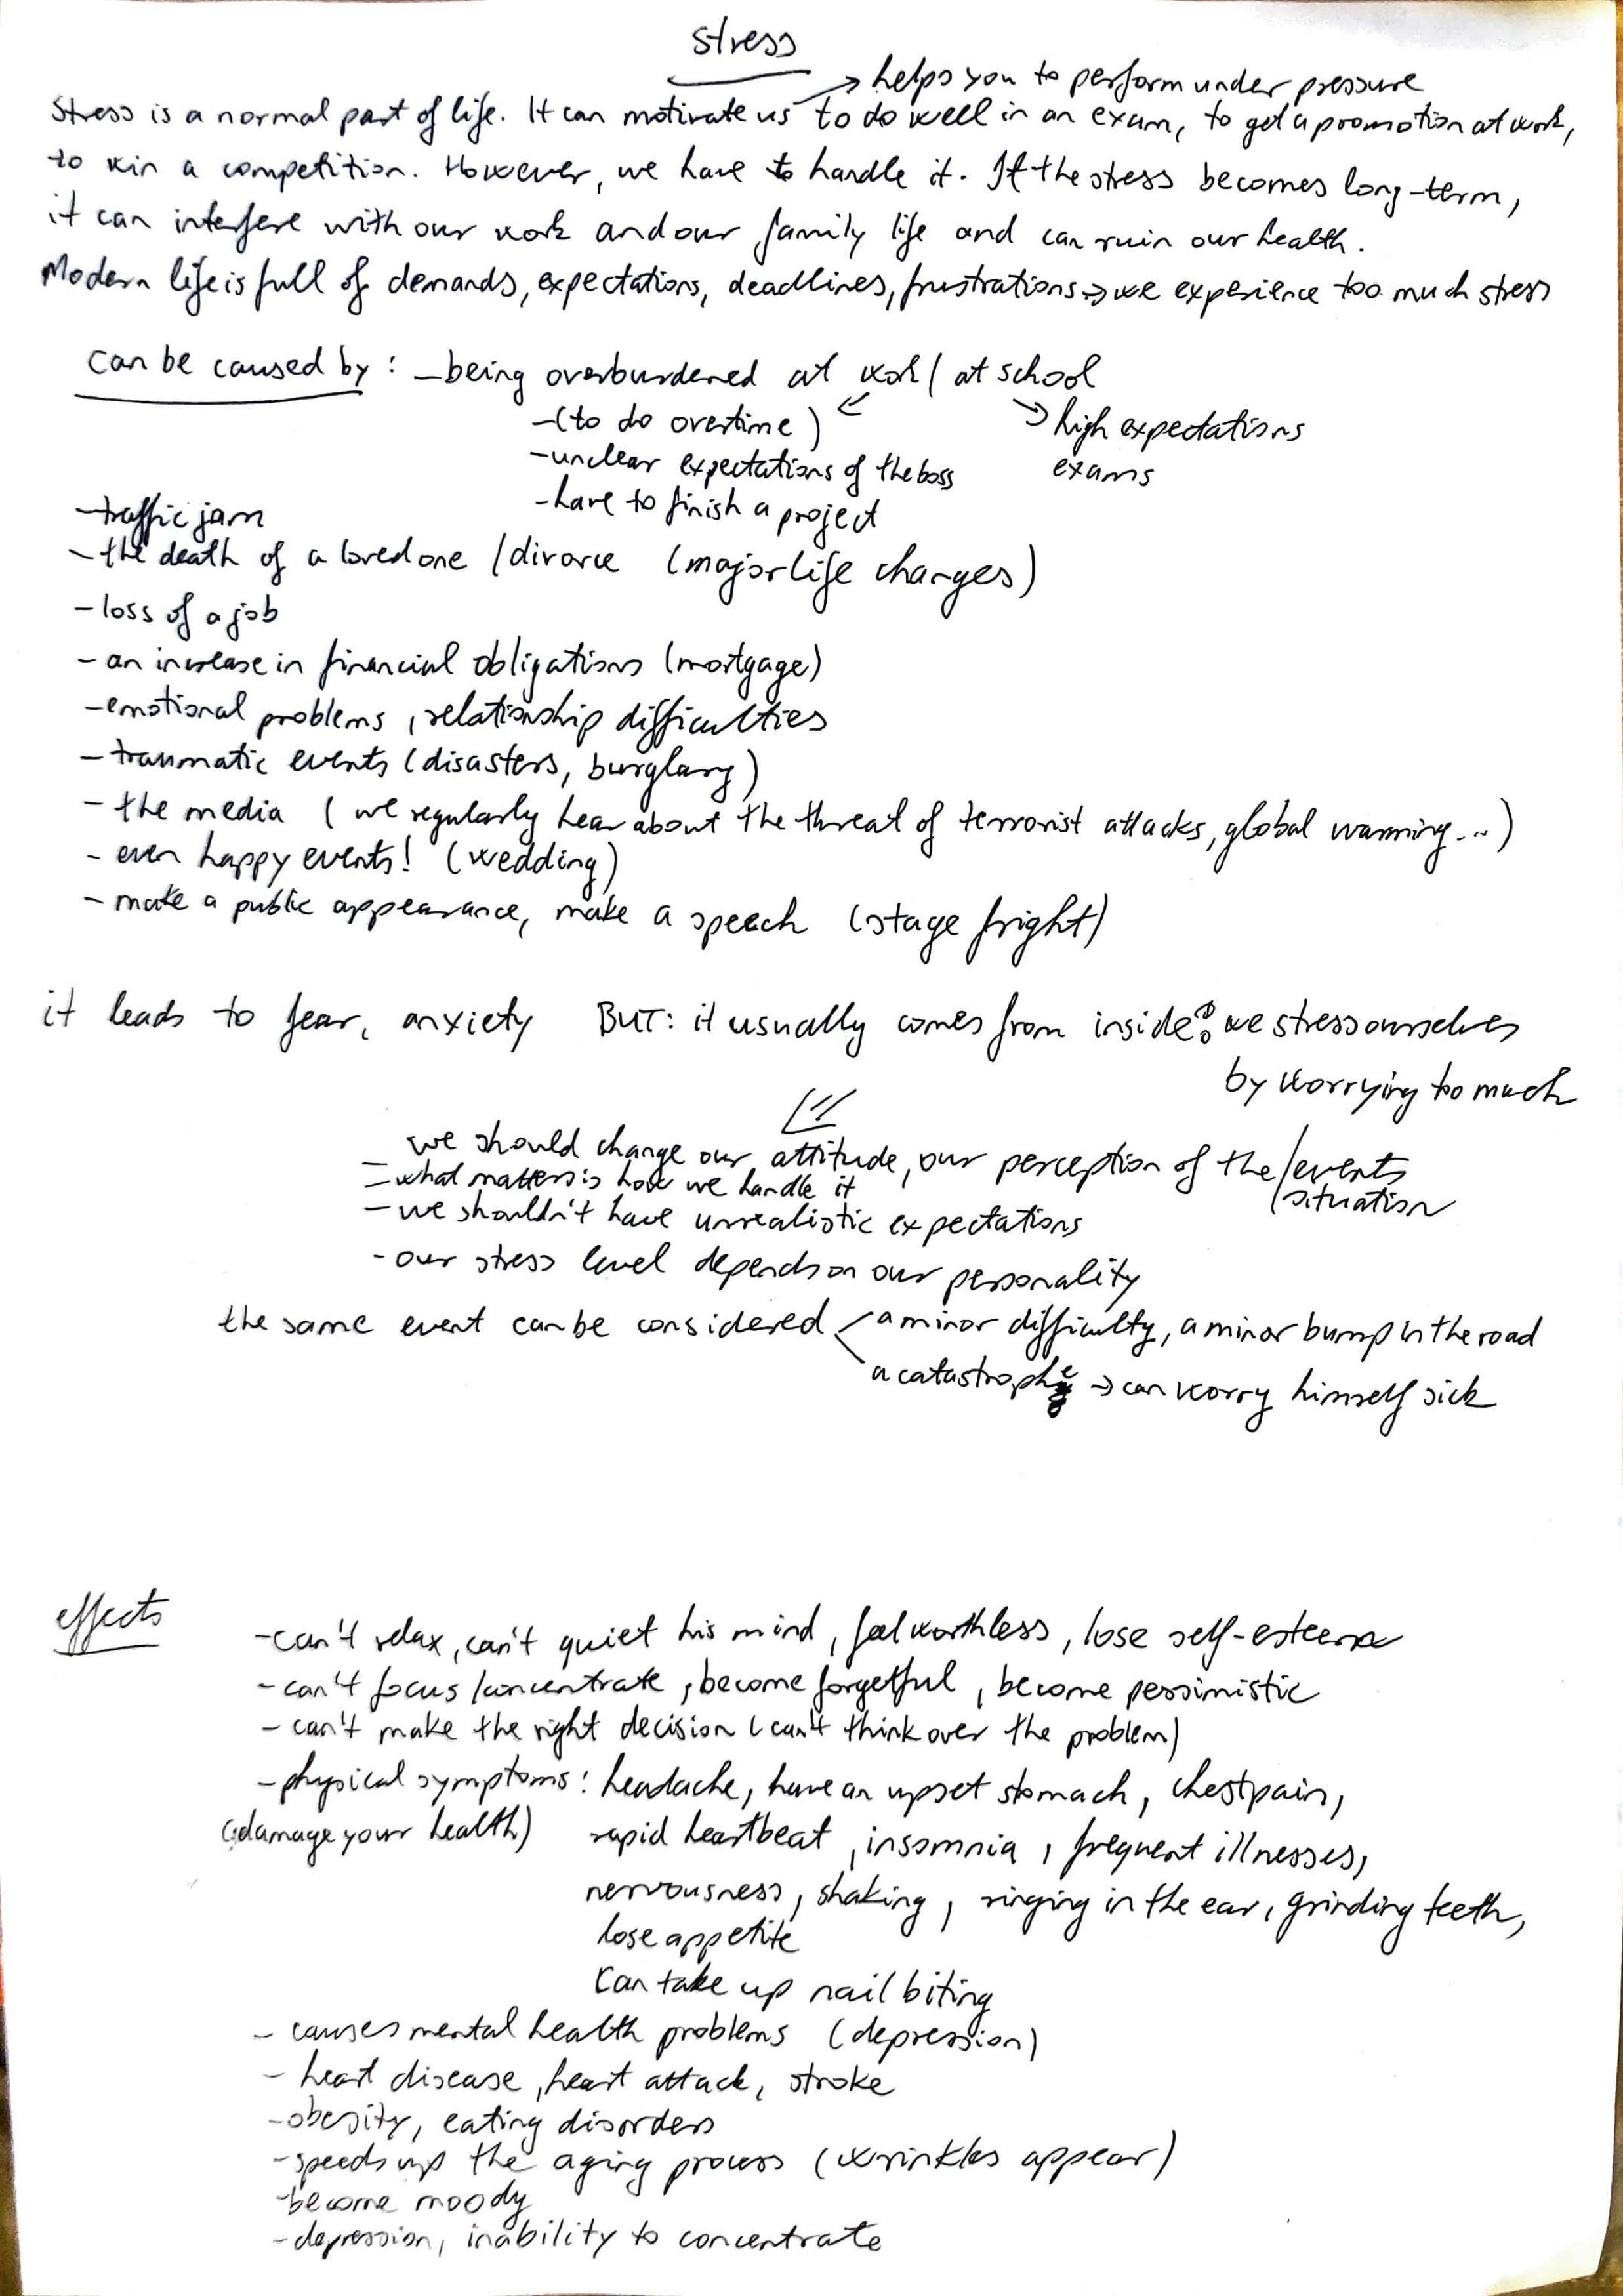 Stress
→ helps you to perform under pressure
Stress is a normal part of life. It can motivate us to do well in an exam, to get a promotion at work,
to win a competition. However, we have to handle it. If the stress becomes long-term,
it can interfere with our work and our family life and can ruin our health.
Modern life is full of demands, expectations, deadlines, frustrations → we experience too much stress
can be caused by: - being overburdened at work / at school
- (to do overtime) ↙ → high expectations
- unclear expectations of the boss exams
- have to finish a project
- traffic jam
- the death of a loved one / divorce (major life changes)
- loss of a job
- an increase in financial obligations (mortgage)
- emotional problems, relationship difficulties
- traumatic events (disasters, burglary)
- the media (we regularly hear about the threat of terrorist attacks, global warming...)
- even happy events! (wedding)
- make a public appearance, make a speech (stage fright)
it leads to fear, anxiety BUT: it usually comes from inside: we stress ourselves
by worrying too much
- we should change our attitude, our perception of the / events
/ situation
- what matters is how we handle it
- we shouldn't have unrealistic expectations
- our stress level depends on our personality
the same event can be considered < a minor difficulty, a minor bump in the road
a catastrophe → can worry himself sick
effects
- can't relax, can't quiet his mind, feel worthless, lose self-esteem
- can't focus / concentrate, become forgetful, become pessimistic
- can't make the right decision (can't think over the problem)
- physical symptoms: headache, have an upset stomach, chestpain,
(damage your health) rapid heartbeat, insomnia, frequent illnesses,
nervousness, shaking, ringing in the ear, grinding teeth,
lose appetite
can take up nail biting
- causes mental health problems (depression)
- heart disease, heart attack, stroke
- obesity, eating disorders
- speeds up the aging process (wrinkles appear)
- become moody
- depression, inability to concentrate